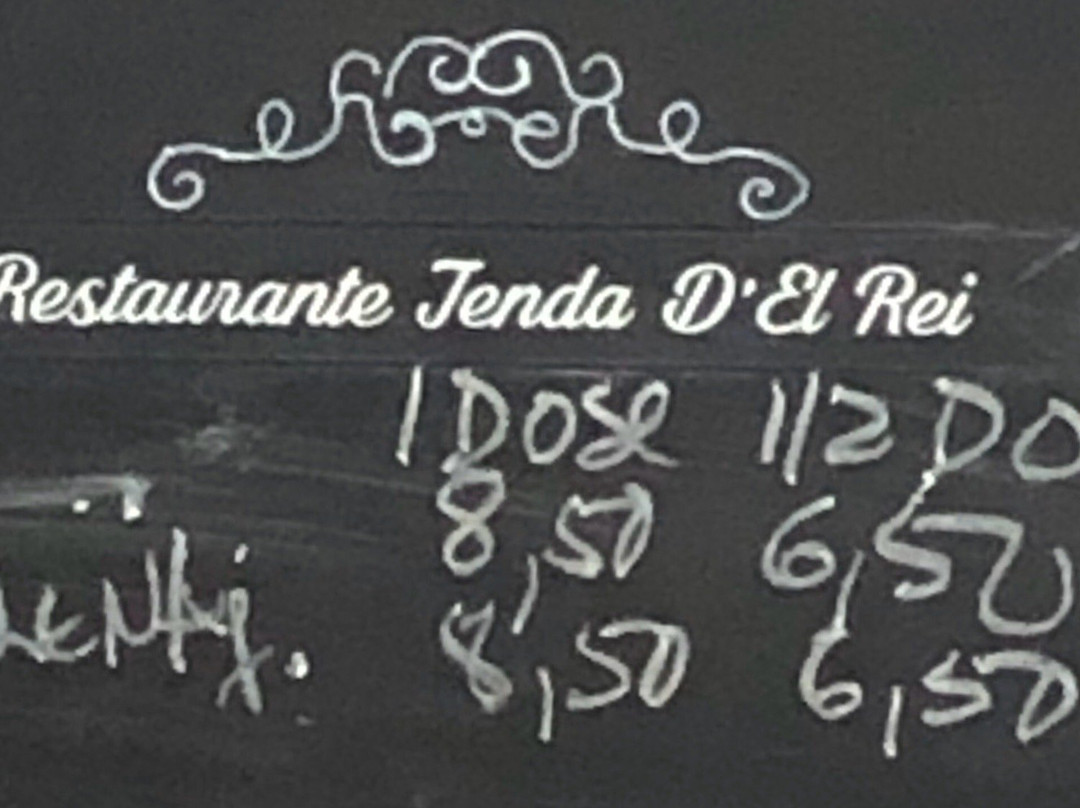 Restaurante Tenda D'El Rei
1 DOSE 1/2 DO
8,50 6,50
8,50 6,50